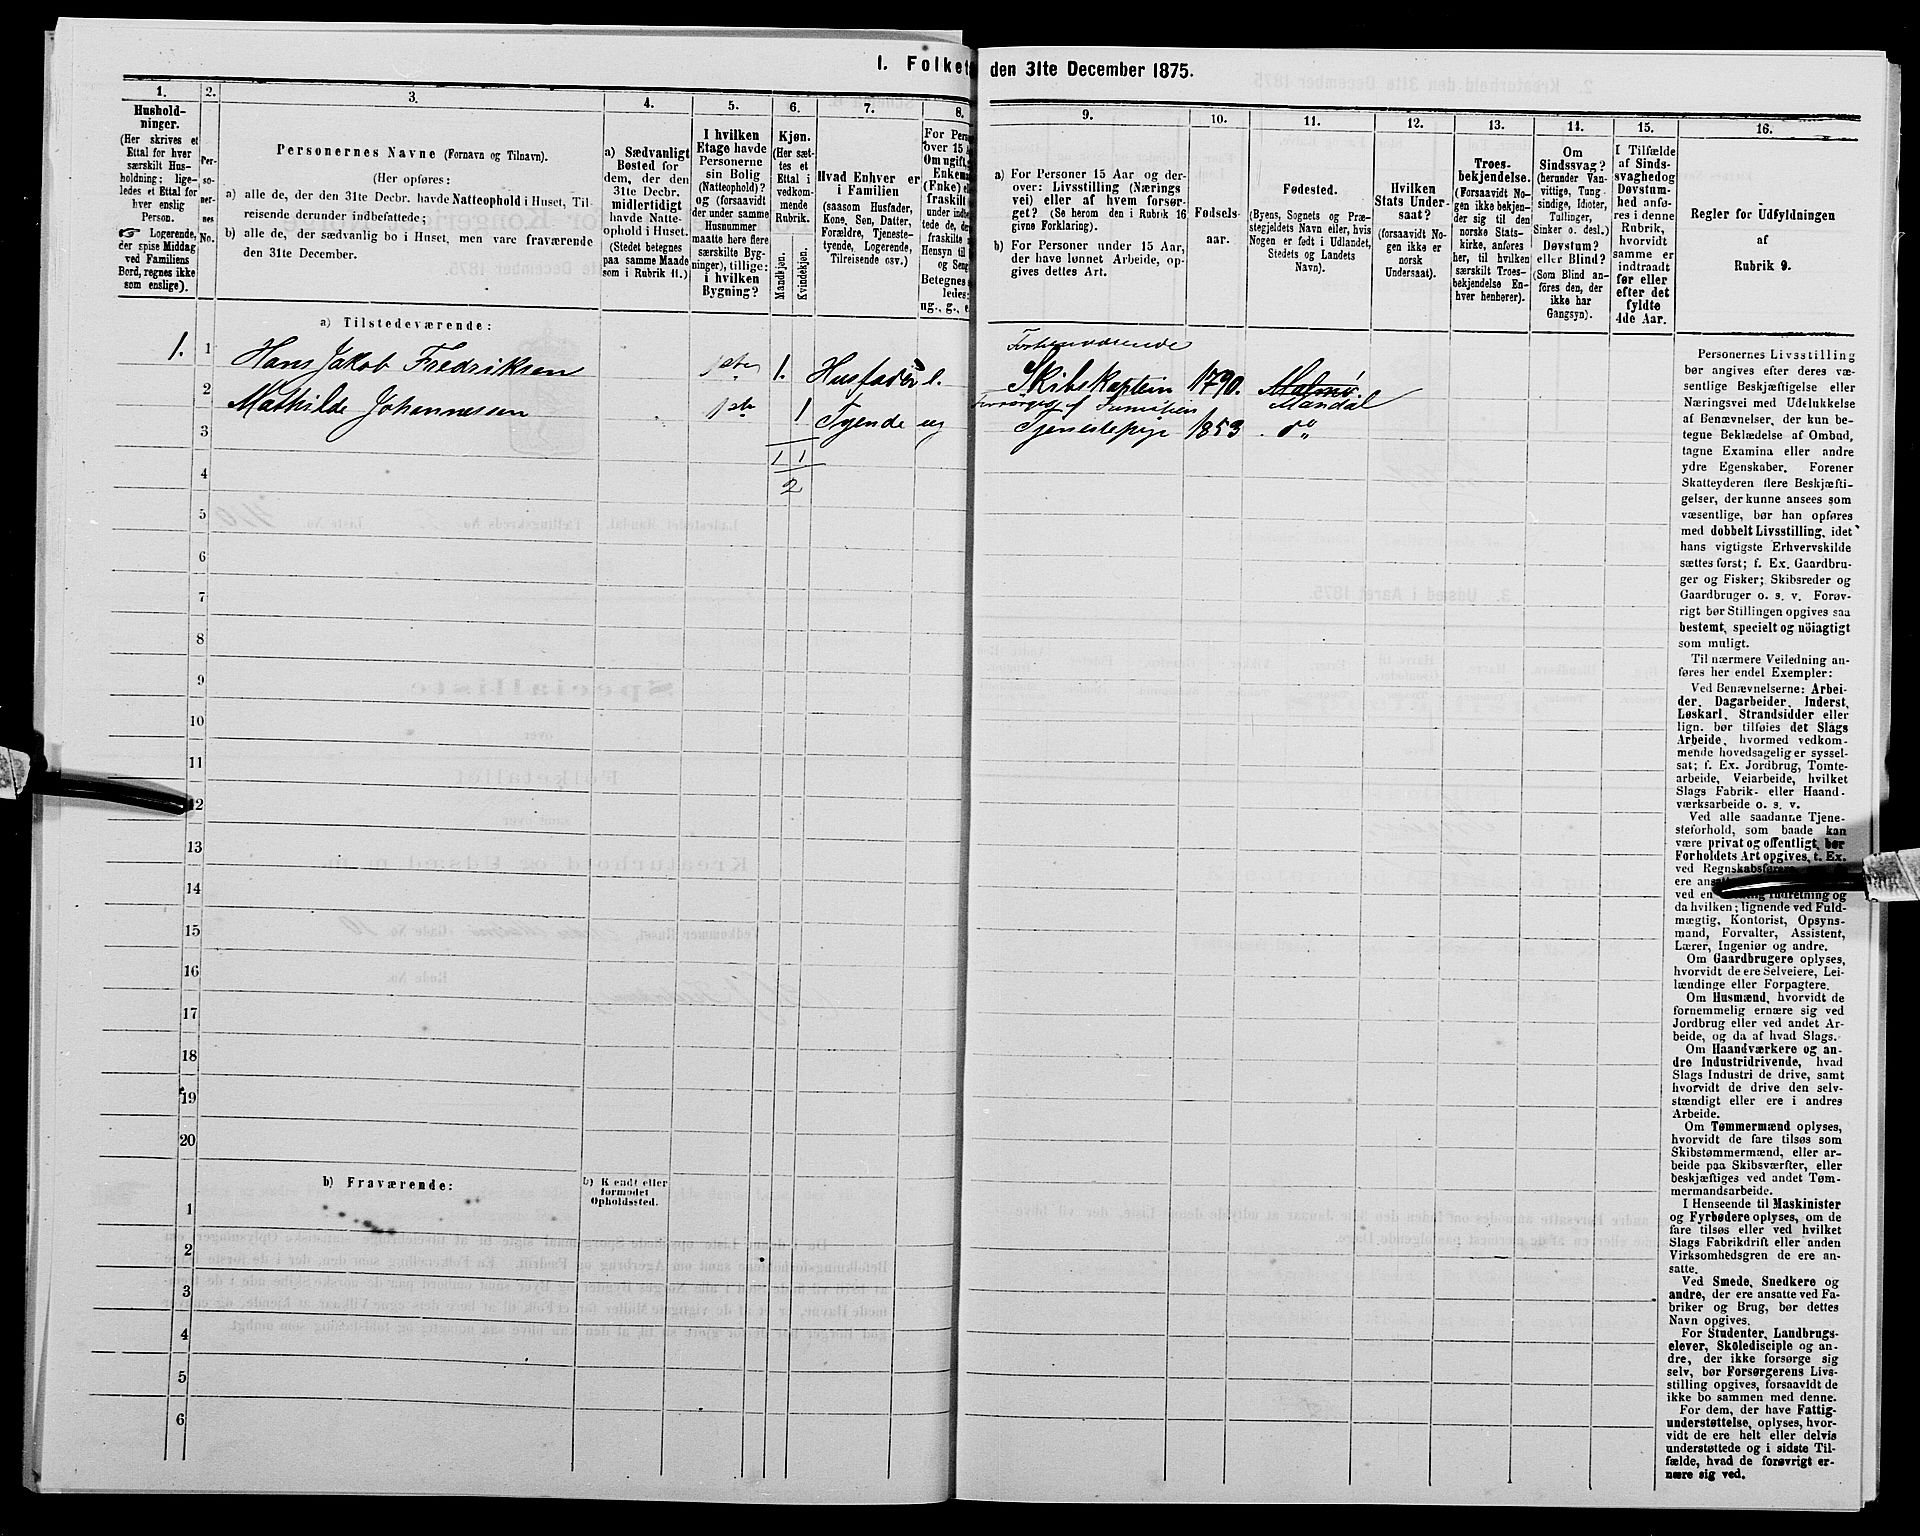 1. Folket
den 31te December 1875.
1.
Hushold-
ninger.
(Her skrives et
Ettal for hver
særskilt Hus-
holdning; lige-
ledes et Ettal for
hver enslig
Person.
☞ Logerende,
der spise Middag
ved Familiens
Bord, regnes ikke
som enslige).
2.
Per-
so-
ner-
nes
No.
3.
Personernes Navne (Fornavn og Tilnavn).
(Her opføres:
a) alle de, der den 31te Decbr. havde Natteophold i Huset, Til-
reisende derunder indbefattede;
b) alle de, der sædvanlig bo i Huset, men vare fraværende
den 31te December.
4.
a) Sædvanligt
Bosted for
dem, der den
31te Decbr.
midlertidigt
havde Natte-
ophold i Huset.
(Stedet betegnes
paa samme Maade
som i Rubrik 11.)
5.
I hvilken
Etage havde
Personerne
sin Bolig
(Natteophold)?
og (forsaavidt
der under samme
Husnummer
maatte høre flere
særskilte Byg-
ninger), tillige:
i hvilken
Bygning?
6.
Kjøn.
(Her sæt-
tes et
Ettal i
vedkom-
mende
Rubrik.
Mandkjøn.
Kvindekjøn.
7.
Hvad Enhver er
i Familien
(saasom Husfader,
Kone, Søn, Datter,
Forældre, Tjeneste-
tyende, Logerende,
Tilreisende osv.)
8.
For Perso
over 15 A
Om ugift,
Enkema
(Fnke) el
fraskilt
under indb
tede de, d
fraskilte
Hensyn til
og Seng
Betegnes s
ledes:
ug., g., e.
9.
a) For Personer 15 Aar og der-
over: Livsstilling (Nærings
vei) eller af hvem forsør-
get? (Se herom den i Rubrik 16
givne Forklaring).
b) For Personer under 15 Aar,
der have lønnet Arbeide, op-
gives dettes Art.
10.
Fødsels-
aar.
11.
Fødested.
(Byens, Sognets og Præ-
stegjeldets Navn eller, hvis
Nogen er født i Udlandet,
Stedets og Landets
Navn).
12.
Hvilken
Stats Under-
saat?
(forsaavidt No-
gen ikke er
norsk
Undersaat).
13.
Troes-
bekjendelse.
(Forsaavidt No-
gen ikke bekjen-
der sig til den
norske Stats-
kirke, anføres
her, til hvilken
særskilt Troes-
bekjendelse En-
hver henhører).
14.
Om
Sindssvag?
(herunder Van-
vittige, Tung-
sindige, Idioter,
Tullinger,
Sinker o. desl.)
Døvstum?
eller Blind?
(Som Blind an-
føres den, der
ikke har
Gangsyn).
15.
I Tilfælde
af Sinds-
svaghed og
Døvstum-
hed anfø-
res i denne
Rubrik,
hvorvidt
samme er
indtraadt
før eller
efter det
fyldte
4de Aar.
16.
Regler for Udfyldningen
af
Rubrik 9.
a) Tilstedeværende:
1.
1 Hans Jakob Fredriksen 1ste 1. Husfader e.
Forhenværende
Skibskaptein 1790. Malmø.
Mandal
2 Mathilde Johannessen 1ste 1 Tyende ug
Tjenestepige 1853 do
3
1 1
4
2
5
6
7
8
9
10
11
12
13
14
15
16
17
18
19
20
b) Fraværende:
b) Kendt eller
formodet
Opholdssted.
1
2
3
4
5
6
Personernes Livsstilling
bør angives efter deres væ-
sentlige Beskjæftigelse eller
Næringsvei med Udelukkelse
af Benævnelser, der kun be-
tegne Beklædelse af Ombud,
tagne Examina eller andre
ydre Egenskaber. Forener
Skatteyderen flere Beskjæfti-
gelser, der kunne ansees som
væsentlige, bør han opføres
med dobbelt Livsstilling, idet
hans vigtigste Erhvervskilde
sættes først; f. Ex. Gaardbru-
ger og Fisker; Skibsreder og
Gaardbruger o. s. v. Forøv-
rigt bør Stillingen opgives saa
bestemt, specielt og nöiagtigt
som muligt.
Til nærmere Veiledning an-
føres her endel Exempler:
Ved Benævnelserne: Arbei-
der, Dagarbeider, Inderst,
Løskarl, Strandsidder eller
lign. bør tilføies det Slags
Arbeide, hvormed vedkom-
mende hovedsagelig er syssel-
sat; f. Ex. Jordbrug, Tomte-
arbeide, Veiarbeide, hvilket
Slags Fabrik- eller Haand-
værksarbeide o. s. v.
Ved alle saadanne Tjene-
steforhold, som baade kan
være privat og offentligt, bør
Forholdets Art opgives, f. Ex.
ved Regnskabsførere
ere ansat
ved en Indretning og
da hvilken; lignende ved Fuld-
mægtig, Kontorist, Opsyns-
mand, Forvalter, Assistent,
Lærer, Ingeniør og andre.
Om Gaardbrugere oplyses,
hvorvidt de ere Selveiere, Lei-
lændinge eller Forpagtere.
Om Husmænd, hvorvidt de
fornemmelig ernære sig ved
Jordbrug eller ved andet Ar-
beide, og da af hvad Slags.
Om Haandværkere og an-
dre Industridrivende, hvad
Slags Industri de drive, samt
hvorvidt de drive den selv-
stændigt eller ere i andres
Arbeide.
Om Tømmermænd oplyses,
hvorvidt de fare tilsøs som
Skibstømmermænd, eller ar-
beide paa Skibsværfter, eller
beskjæftiges ved andet Tøm-
mermandsarbeide.
I Henseende til Maskinister
og Fyrbødere oplyses, om de
fare tilsøs eller ved hvilket
Slags Fabrikdrift eller anden
Virksomhedsgren de ere an-
satte.
Ved Smede, Snedkere og
andre, der ere ansatte ved Fa-
briker og Brug, bør dettes
Navn opgives.
For Studenter, Landbrugs-
elever, Skoledisciple og an-
dre, der ikke forsørge sig
selv, bør Forsørgerens Livs-
stilling opgives, forsaavidt de
ikke bo sammen med denne.
For dem, der have Fattig-
understøttelse, oplyses, hvor-
vidt de ere helt eller delvis
understøttede og i sidste Til-
fælde, hvad de forøvrigt er-
nære sig ved.